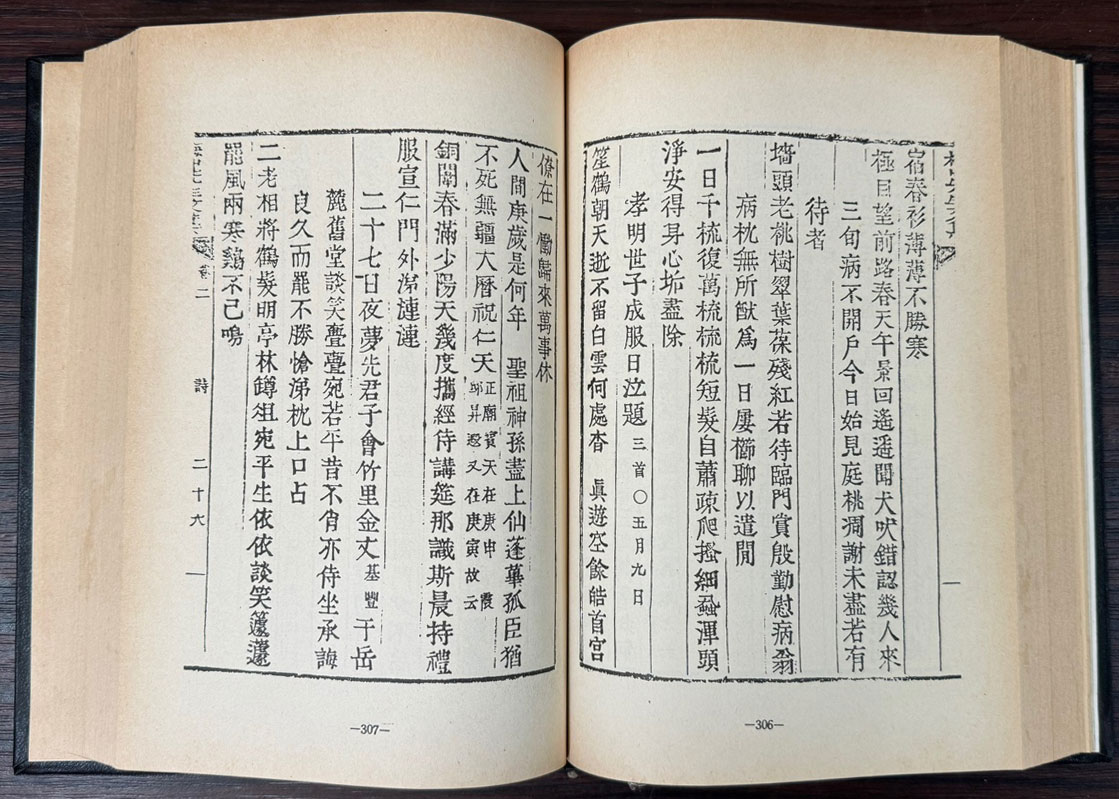 宿春衫薄薄不勝寒
極目望前路春天午景回遙遥聞犬吠錯認幾人來
三旬病不開戶今日始見庭桃凋謝未盡若有
待者
墻頭老桃樹翠葉葆殘紅若待臨門賞殷勤慰病翁
病枕無所猷爲一日屢櫛聊以遣閒
一日千梳復萬梳梳梳短髮自蕭疎爬搔細蝨渾頭
淨安得身心垢盡除
孝明世子成服日泣題三首〇五月九日
笙鶴朝天逝不留白雲何處杳 眞遊空餘皓首宮
—306—
僚在一慟歸來萬事休
人間庚歲是何年 聖祖神孫盡上仙蓬蓽孤臣猶
不死無疆大曆祝仁天正廟賓天在庚申 霞邱昇遐又在庚寅故云
銅闈春滿少陽天幾度攜經侍講筵那識斯晨持禮
服宣仁門外淚漣漣
二十七日夜夢先君子會竹里金丈基豐于岳
麓舊堂談笑亹亹宛若平昔不肖亦侍坐承誨
良久而罷不勝愴涕枕上口占
二老相將鶴髮明亭林罇俎宛平生依依談笑蘧蘧
罷風雨寒鷄不已鳴
卷二 詩 二十六
—307—